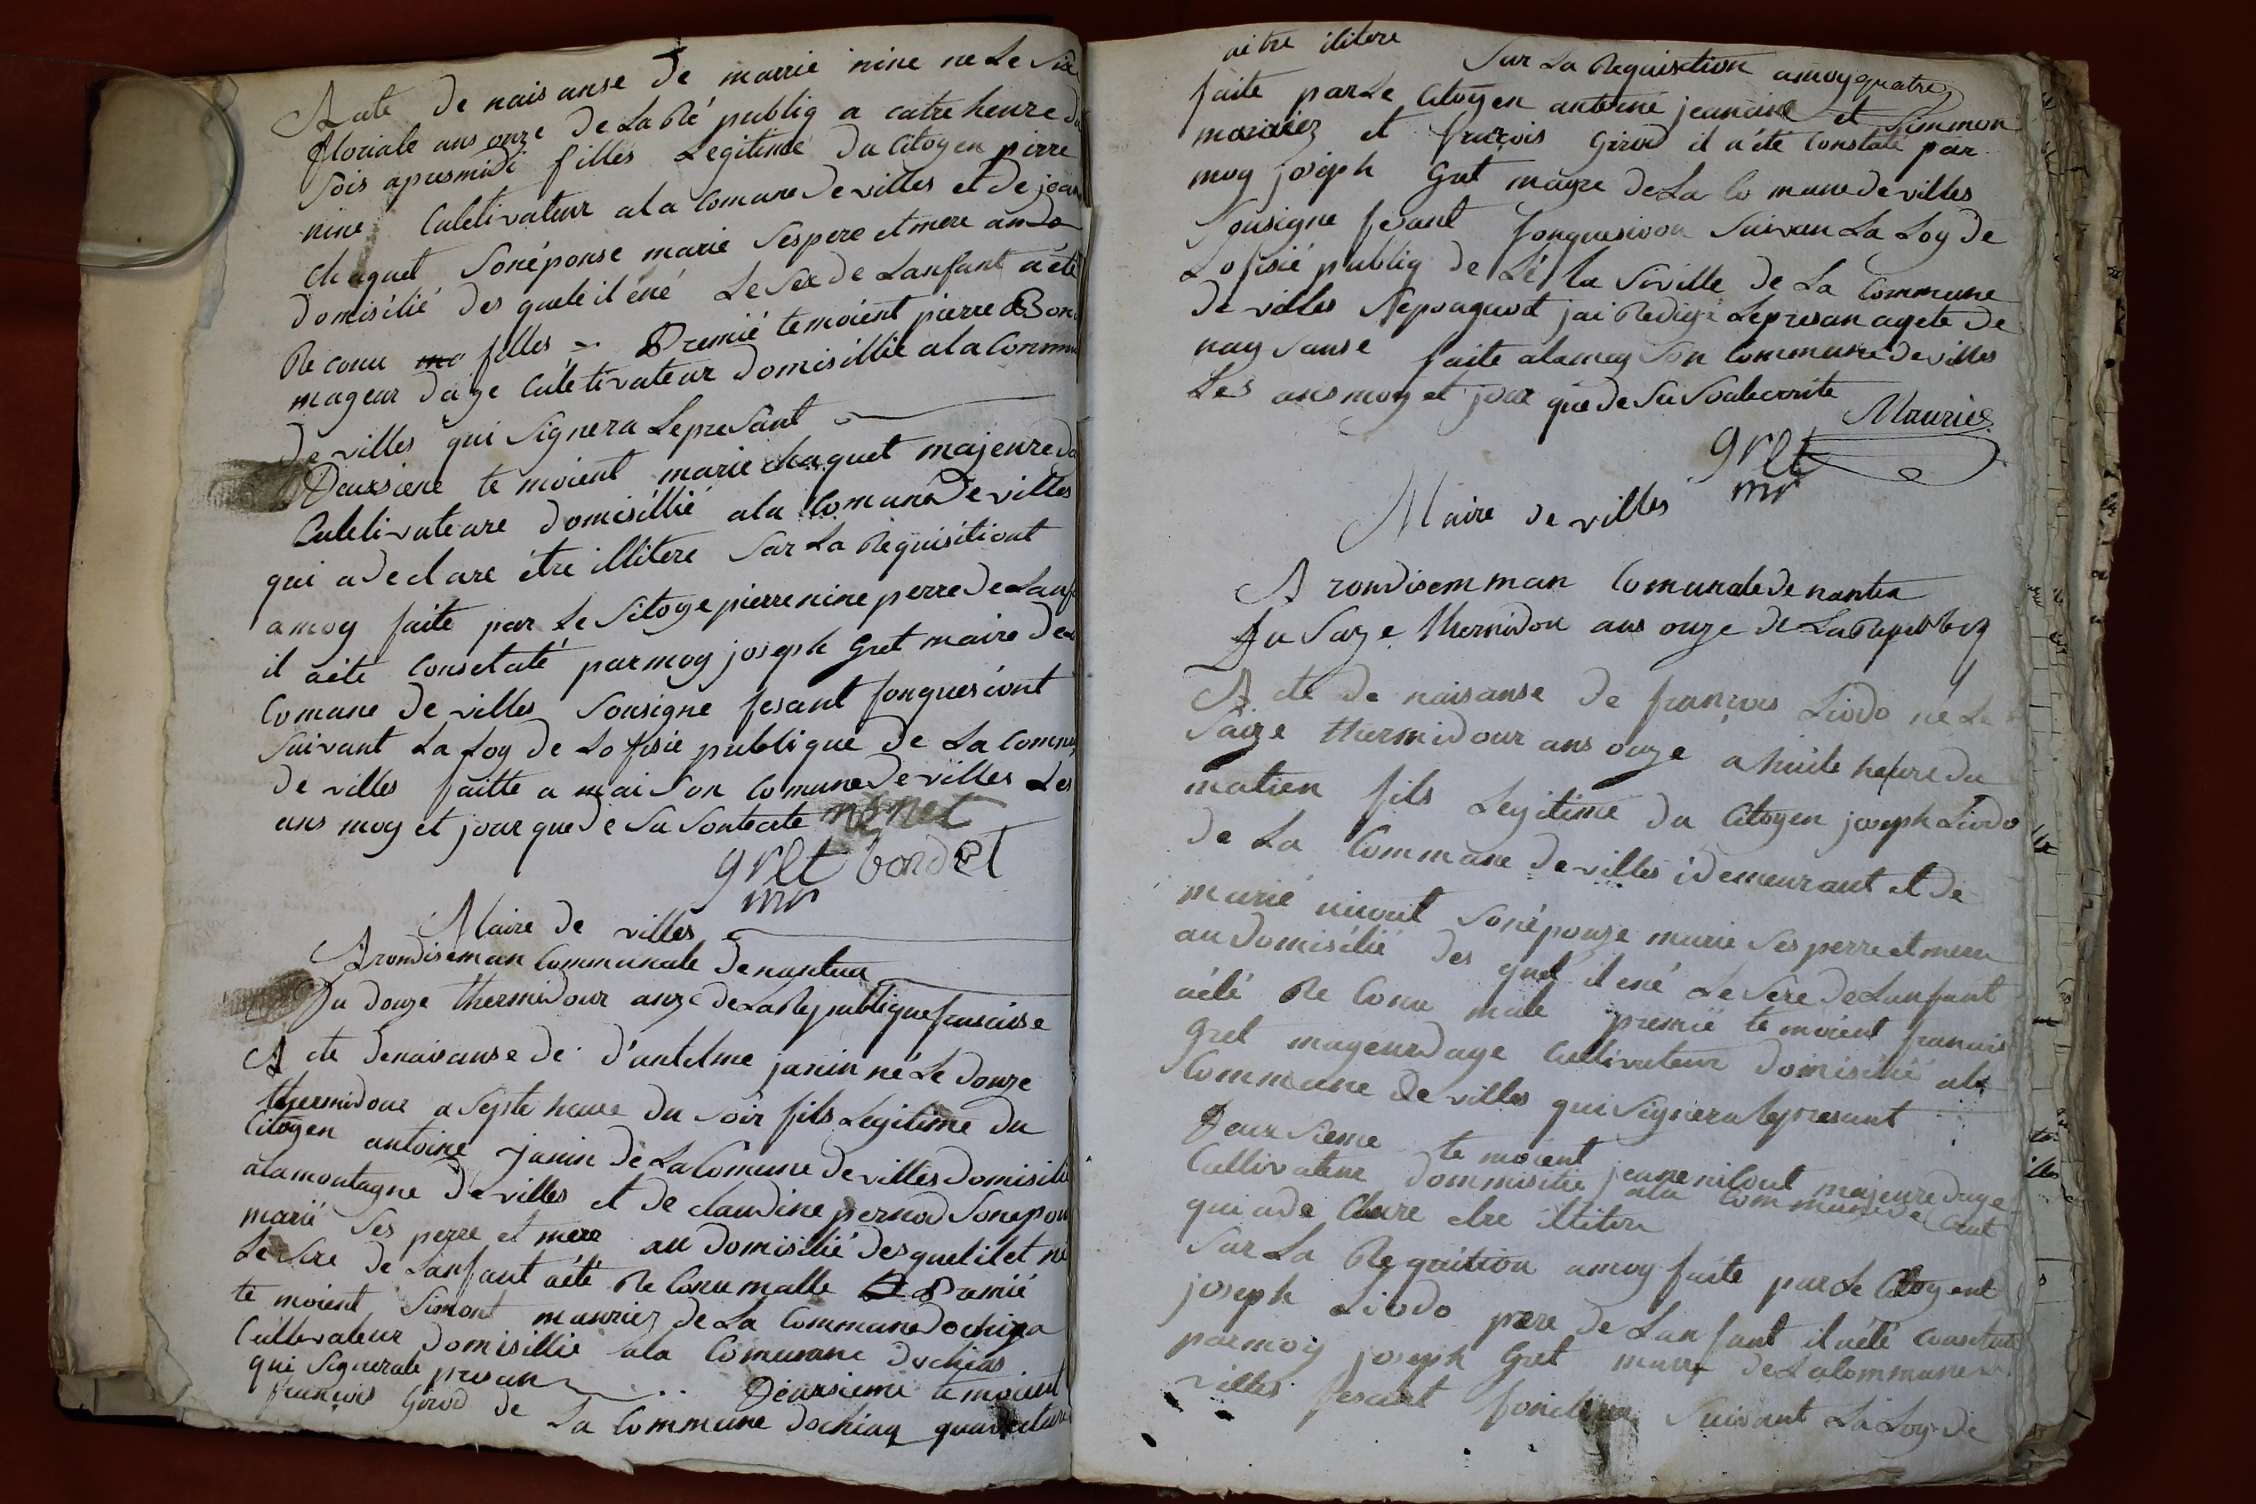 Acte de naisanse de marrie nine ne Le six
floriale ans onze de La Ré publiq a catre heure du
sois apresmidi filles Legitime Du Citoyen pirre
nine Culetivateur ala Comune De villes et de jean
Chaquet Sonéponse marie Sespere et mere au
Domisilié des quele il éné Le Sex de Lanfant a été
Re conu filles Premié temoient pierre Bon
mageur dage Culetivateur Domisillié ala Commu
De villes qui Signera LepreSant
Deuxsiene te moient marie chaquet majeure da
Culetivateure Domisillié ala Comune De villes
qui a declare être illitere Sur La Requisitiont
amoy faite par Le Sitoye pierre nine perre de Lanf
il aété Consetaté parmoy joseph Gret maire De
Comune De villes Sousigne fesant fonquesiont
Suivant La Loy de Lofisié publique De La Commu
De villes faitte a maiSon Comune De villes Les
ans moy et jour que de Su Sontecrite
grlt bordet
mr
Maire de villes
Arondiseman Communale Denantua
Du douze thermidour onze de La Republique fransaise
Acte Denaisanse de d'antelme janin né Le douze
thermidour a Septe heure Du Soir fils Legitime Du
Citoyen antoine janin De La Comune De villes Domisilié
alamontagne De villes et de claudine pernod Sonepou
marié Ses perre et mere au Domisilié des quel il et né
Le Sexe de Lanfant aété Re Conu malle Premié
te moient Simont mauriez De La Commune Dochiaz
Cultivateur Domisillié ala Comunane dochias
qui Signerale presan Deuxsieme temoient
francois Girod De La Commune Dochiaz
aitre ilitere Sur La Requisition amoy quatre
faite par Le Citoyen antoine jeanine et Simmon
mouriez et fraçois Girod il a été Constaté par
moy joseph Gret mayre De La Co mune de villes
Sousigne fesant fonquesion Suivan La Loy De
Lofisié publiq de Lé ta Siville De La Commune
De villes Nepouquoi jai Redigé Lepresan aqete De
nay Sanse faite alamey Son Commune De villes
Les ans moy et jour que de Su Soutecrite
Mauriez
grlt
mr
Maire de villes
Arondisemman Comunale de nantua
Du Saize thermidou ans onze de La Republiq
Acte de naisanse de françois Liodo né Le
Saize thermidour ans onze a huite heure du
matien fils Legitime du Citoyen joseph Liodo
de La Commune De villes idemeurant et de
marié Sonépouze marie Ses perre et mere
au Domisilié des quel il ené Le Sexe De Lanfant
aété Re Conu male premié te moient francois
Gret mageurdage Cultivateur Domisilié ala
Commune De villes qui Signera lepresant
Deuxsieme te moient jeane nilout majeure dage
Cultivateur Dommisilié ala Commune de
qui a de Clare etre illitere
Sur La Requition amoy faite par Le Citoyent
joseph Liodo pere De Lanfant il aété Consetate
parmoy joseph Gret maire de La Commune
villes fesant fonction Suivant La Loy de